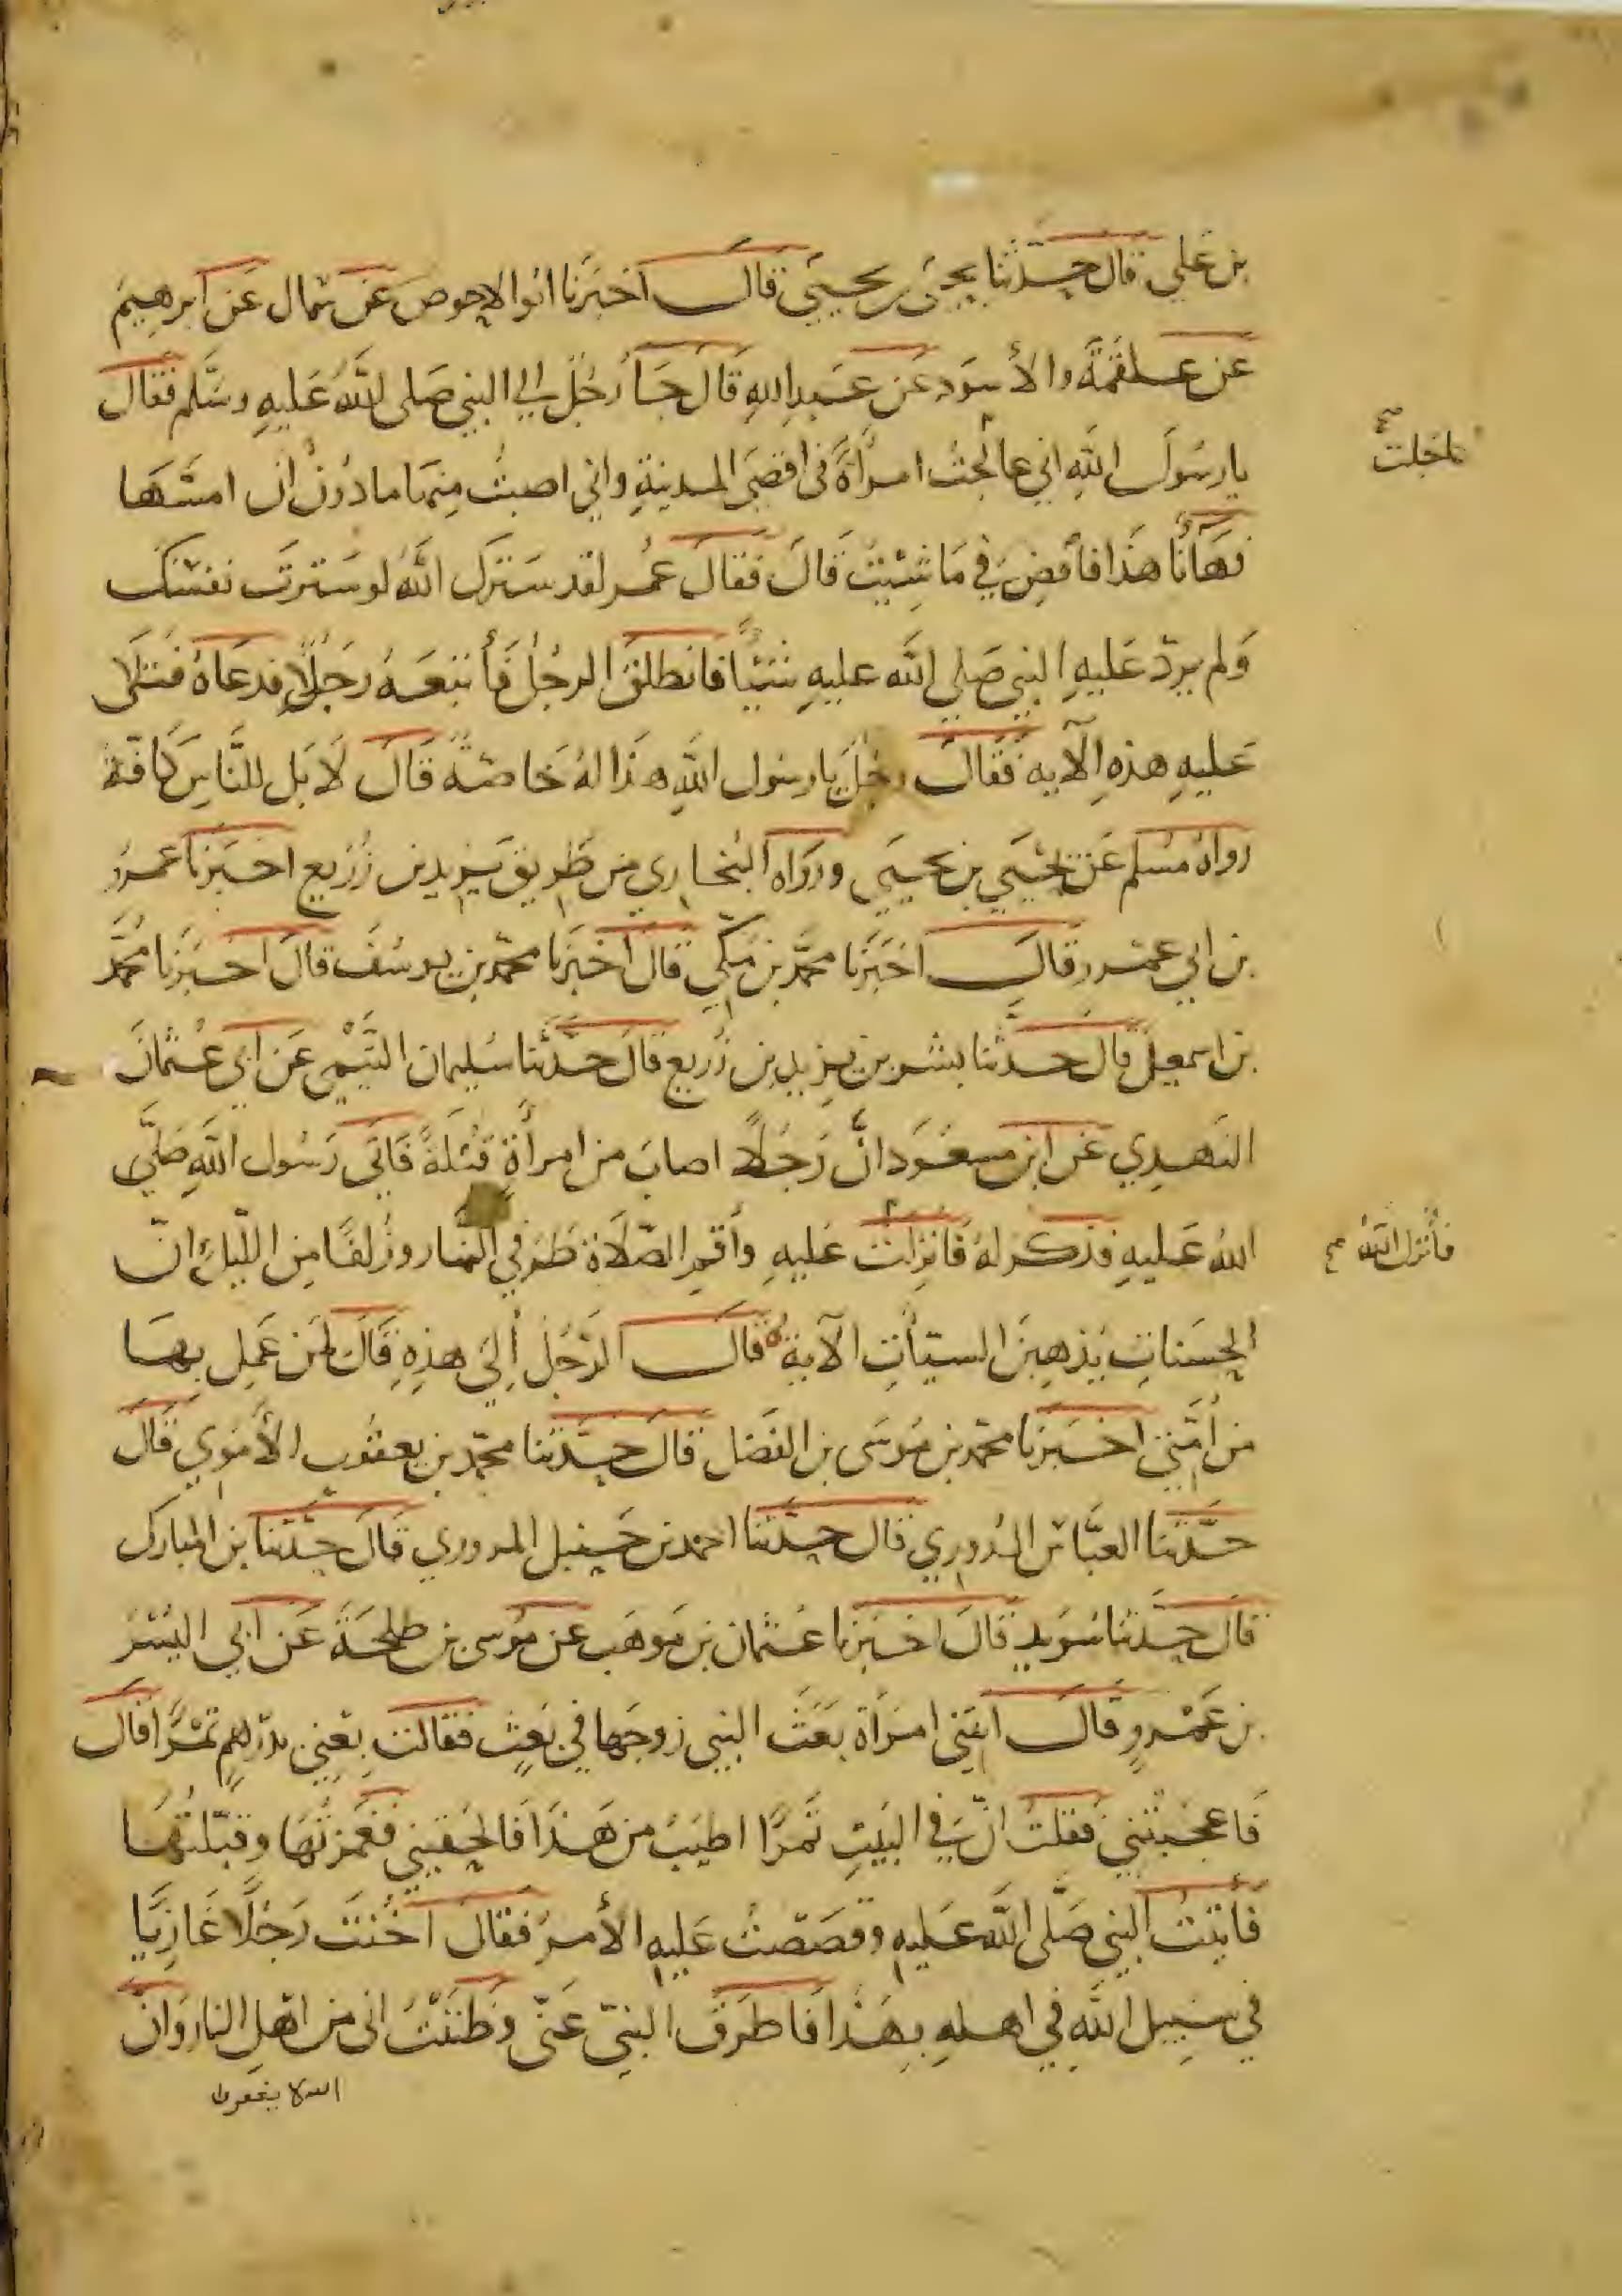 بن علي قال حدثنا يحيى بن يحيى قال اخبرنا ابوالاحوص عن سماك عن ابرهيم
عن علقمة والأسود عن عبدالله قال جاء رجل الي النبي صلى الله عليه وسلم فقال
يا رسول الله اني عالجت امرأة في اقصى المدينة واني اصبت منها ما دون ان امسها
فهاأنا هذا فأقض في ما شئت قال فقال عمر لقد سترك الله لو سترت نفسك
ولم يرد عليه النبي صلى الله عليه شيئا فانطلق الرجل فأتبعه رجلا فدعاه فتلى
عليه هذه الآيه فقال رجل يا رسول الله هذا له خاصة قال لا بل للناس كافة
رواه مسلم عن يحيى بن يحيى ورواه البخاري من طريق يزيد بن زريع اخبرنا عمرو
بن ابي عمرو قال اخبرنا محمد بن مكي قال اخبرنا محمد بن يوسف قال اخبرنا محمد
بن اسمعيل قال حدثنا بشر بن يزيد بن زريع قال حدثنا سليمان التيمي عن ابي عثمان
النهدي عن ابن مسعود ان رجلا اصاب من امرأة قبلة فاتى رسول الله صلى
الله عليه فذكر له فانزلت عليه وأقم الصلاة طرفي النهار وزلفا من الليل ان
الحسنات يذهبن السيئات الآية قال الرجل ألي هذه قال لمن عمل بها
من أمتي اخبرنا محمد بن موسى بن الفضل قال حدثنا محمد بن يعقوب الأموي قال
حدثنا العباس الدوري قال حدثنا احمد بن حنبل المروري قال حدثنا بن المبارك
قال حدثنا سويد قال اخبرنا عثمان بن موهب عن موسى بن طلحة عن ابي اليسر
بن عمرو قال اتتني امرأة بعث النبي زوجها في بعث فقالت بعني بدرهم تمرا قال
فاعجبتني فقلت ان في البيت تمرا اطيب من هذا فالحقيني فغمزتها وقبلتها
فأتيت النبي صلى الله عليه وقصصت عليه الأمر فقال أخنت رجلا غازيا
في سبيل الله في اهله بهذا فاطرق النبي عني وظننت اني من اهل النار وان
الله لا يغفر لي
فأنزل الله صح